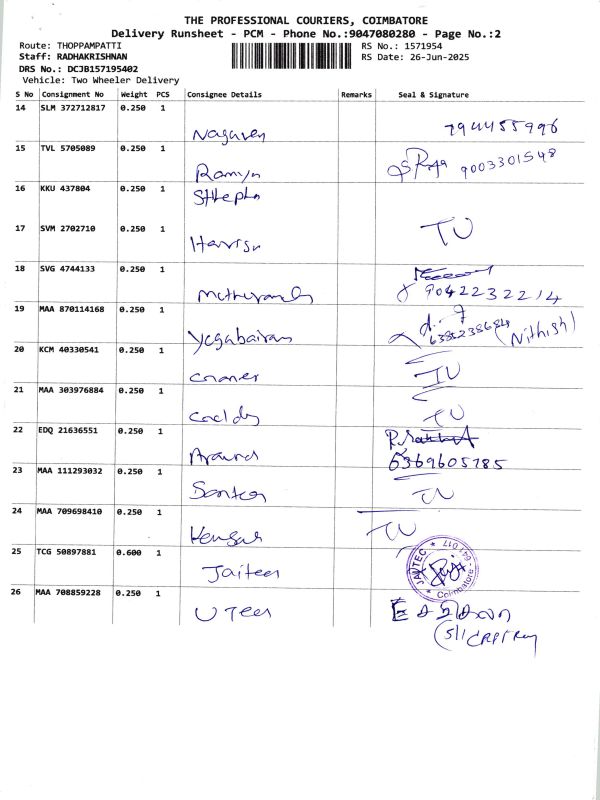 THE PROFESSIONAL COURIERS, COIMBATORE
Delivery Runsheet - PCM - Phone No.:9047080280 - Page No.:2
Route: THOPPAMPATTI
RS No.: 1571954
Staff: RADHAKRISHNAN
RS Date: 26-Jun-2025
DRS No.: DCJB157195402
Vehicle: Two Wheeler Delivery
S No Consignment No Weight PCS Consignee Details Remarks Seal & Signature
14 SLM 372712817 0.250 1
Nagaven 7944455996
15 TVL 5705089 0.250 1
Ramya 9003301548
16 KKU 437804 0.250 1
Sthepha
17 SVM 2702710 0.250 1
Harish
18 SVG 4744133 0.250 1
9042232214
19 MAA 870114168 0.250 1
Yogabairam (Nithish)
20 KCM 40330541 0.250 1
21 MAA 303976884 0.250 1
22 EDQ 21636551 0.250 1
Aravind 6369605785
23 MAA 111293032 0.250 1
24 MAA 709698410 0.250 1
25 TCG 50897881 0.600 1
Jaitee JAITEC * 641 017 * Coimbatore
26 MAA 708859228 0.250 1